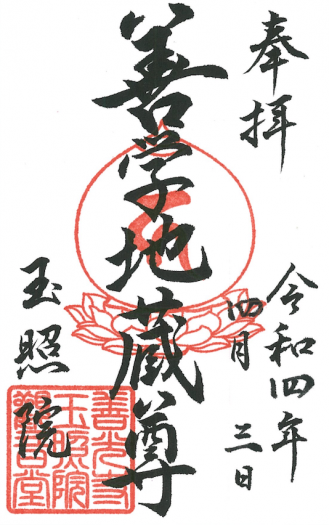 奉拝
令和四年
四月三日
善学地蔵尊
玉照院
善光寺
玉照院